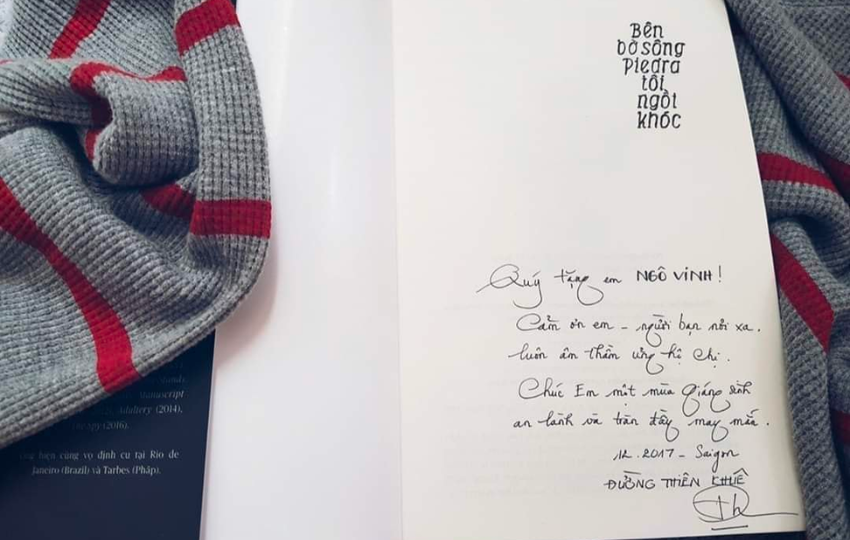 Bên
bờ sông
Piedra
tôi
ngồi
khóc
Quý tặng em NGÔ VINH!
Cảm ơn em - người bạn nơi xa.
luôn âm thầm ủng hộ chị.
Chúc Em một mùa giáng sinh
an lành và tràn đầy may mắn.
12.2017 - Saigon
ĐƯỜNG THIÊN KHUÊ
Manuscript
Adultery (2014),
(2016).
hiện cùng vợ định cư tại Rio de
Janeiro (Brazil) và Tarbes (Pháp).